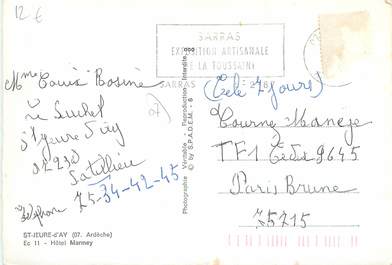 12 €
SARRAS
EXPOSITION ARTISANALE
DE LA TOUSSAINT
SARRAS
Mme Louis Rosine
Le Suchet
St Jeure d'Ay
07290
Satillieu
Téléphone
75-34-42-45
07
(Télé 7 jours)
Tourney Manège
TF1 Cedex 9645
Paris Brune
75715
Photographie Véritable - Reproduction Interdite
© by S.P.A.D.E.M. - 8
ST-JEURE-d'AY (07. Ardèche)
Ec 11 - Hôtel Marmey